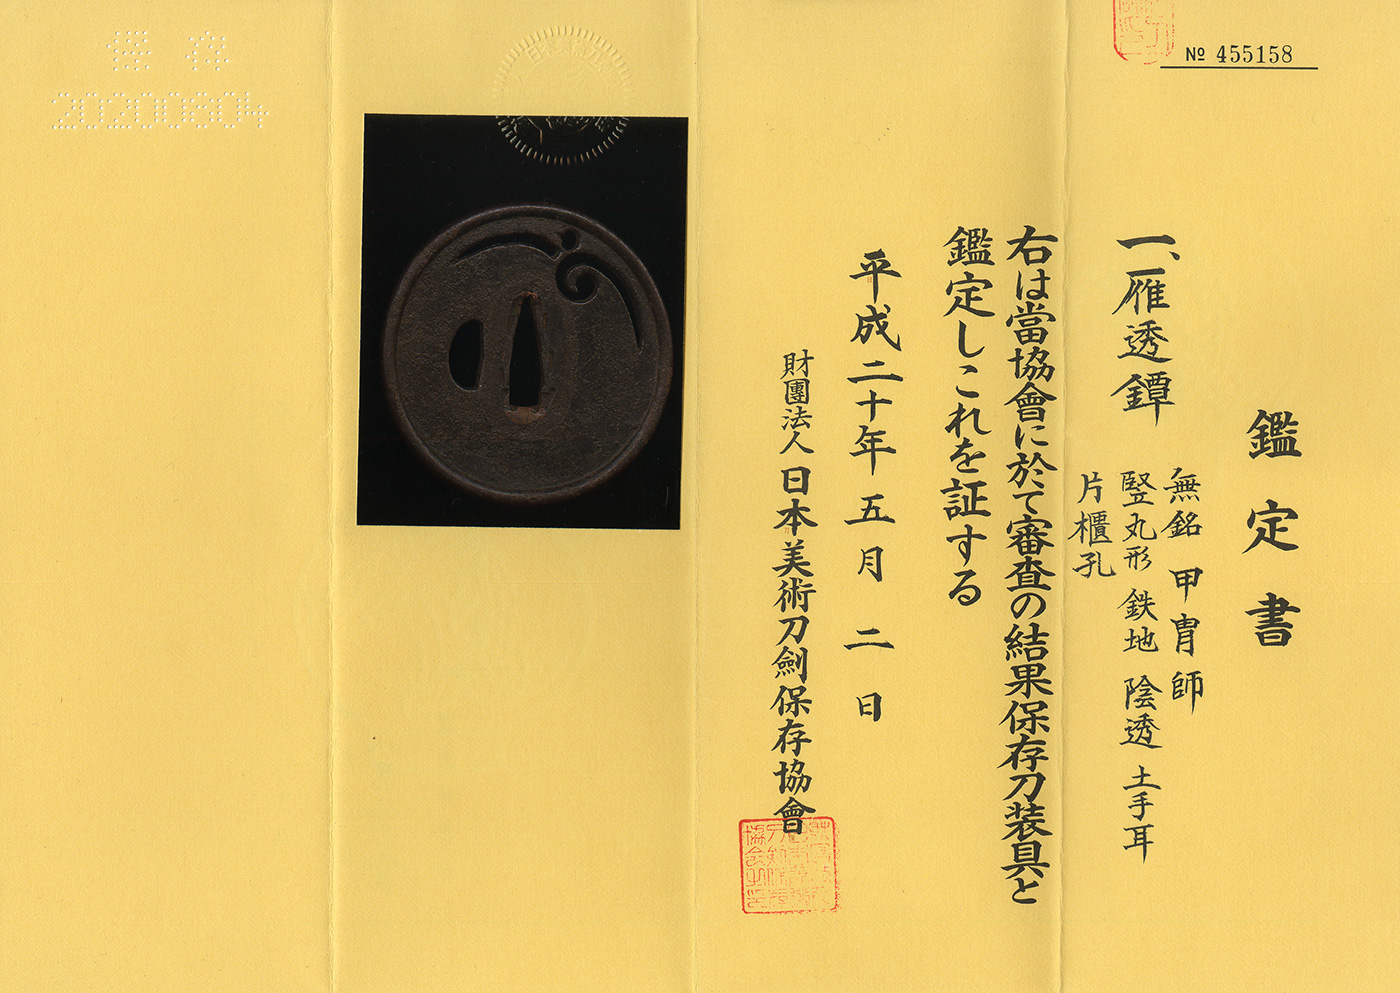 № 455158
鑑定書
一、雁透鐔
無銘 甲冑師
竪丸形 鉄地 陰透 土手耳
片櫃孔
右は當協會に於て審査の結果保存刀装具と
鑑定しこれを証する
平成二十年五月二日
財團法人 日本美術刀劍保存協會
保存
20200804